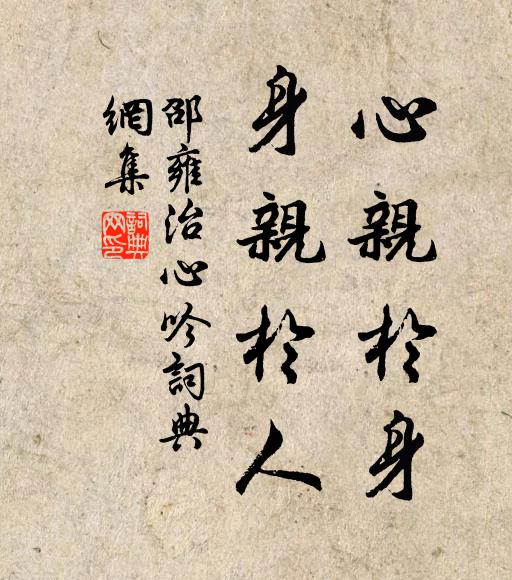 心親於身
身親於人
邵雍治心吟詞典
網集
詞典網印